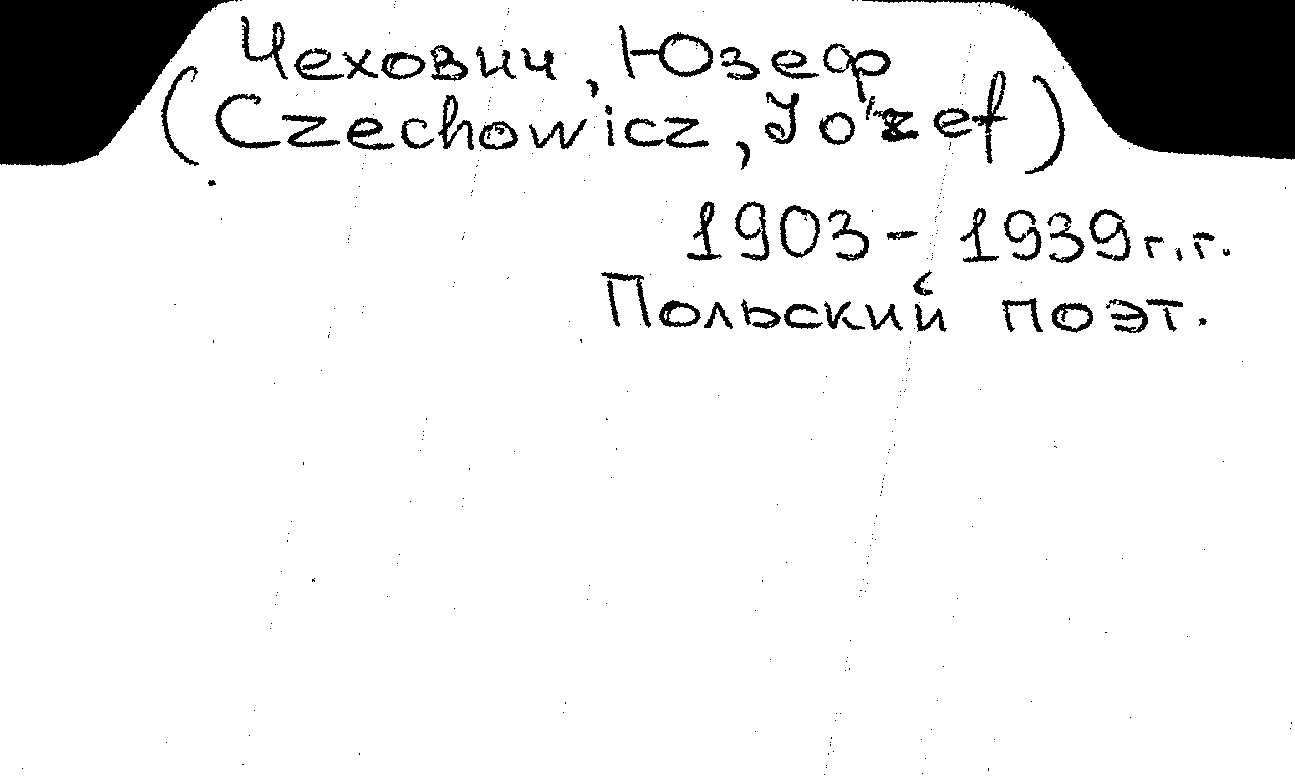 Чехович, Юзеф
(Czechowicz, Józef)
1903 - 1939 г.г.
Польский поэт.